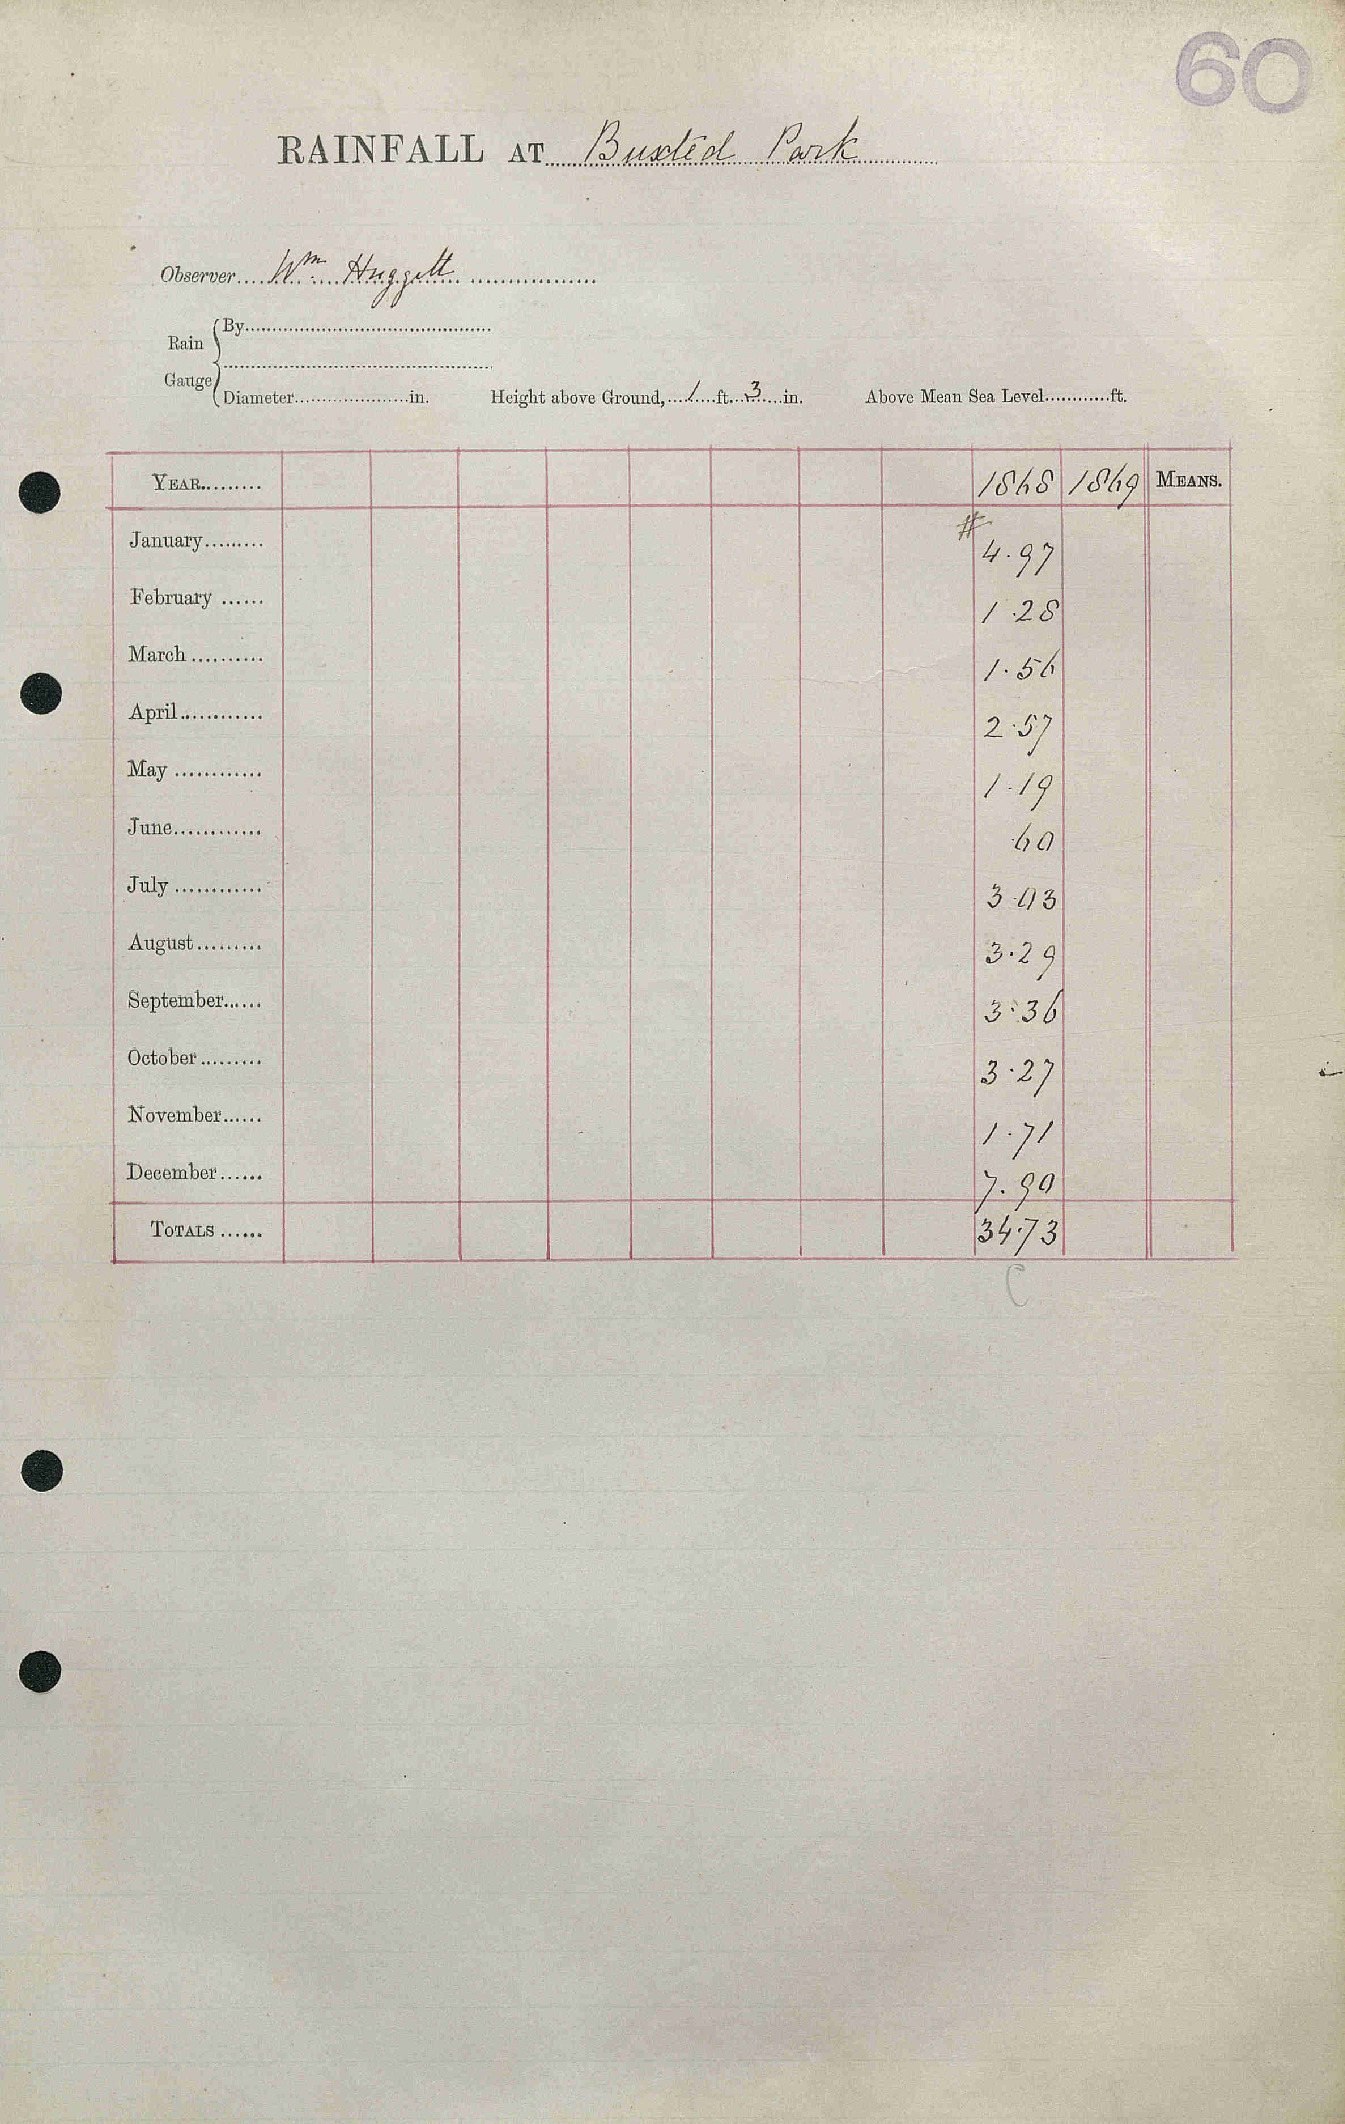 60
RAINFALL AT Buxted Park
Observer Wm Huggett
Rain Gauge
By
Diameter in. Height above Ground, 1 ft. 3 in. Above Mean Sea Level ft.
YEAR 1868 1869 MEANS.
#
January 4.97
February 1.28
March 1.56
April 2.57
May 1.19
June .60
July 3.03
August 3.29
September 3.36
October 3.27
November 1.71
December 7.90
TOTALS 34.73
C